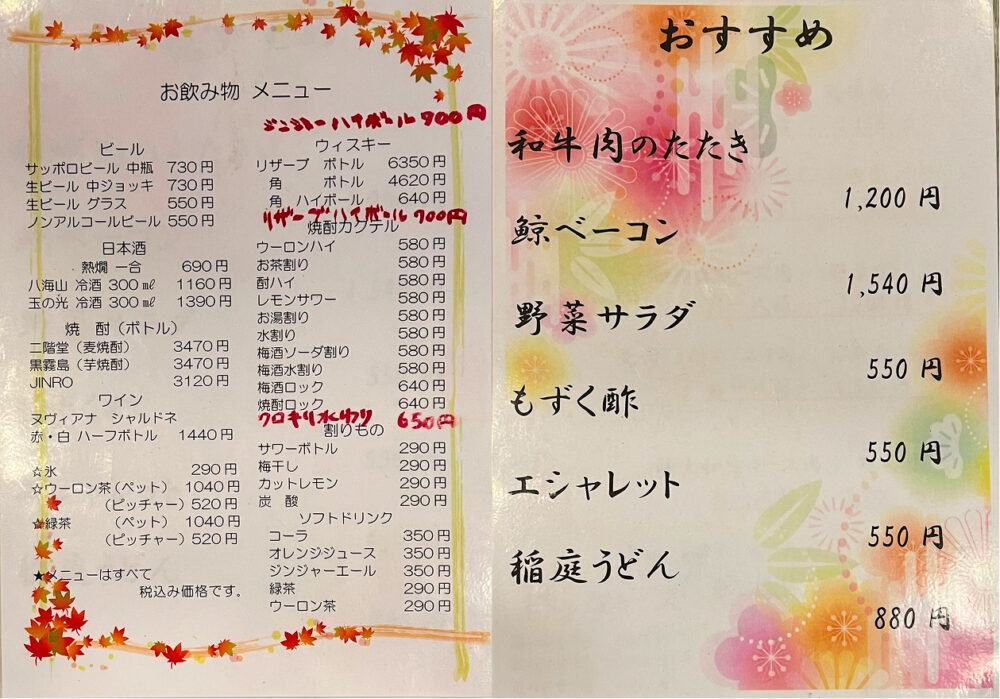 お飲み物 メニュー
ビール
サッポロビール 中瓶 730円
生ビール 中ジョッキ 730円
生ビール グラス 550円
ノンアルコールビール 550円
日本酒
熱燗 一合 690円
八海山 冷酒 300㎖ 1160円
玉の光 冷酒 300㎖ 1390円
焼 酎（ボトル）
二階堂（麦焼酎） 3470円
黒霧島（芋焼酎） 3470円
JINRO 3120円
ワイン
ヌヴィアナ シャルドネ
赤・白 ハーフボトル 1440円
☆氷 290円
☆ウーロン茶（ペット） 1040円
（ピッチャー） 520円
☆緑茶 （ペット） 1040円
（ピッチャー） 520円
★メニューはすべて
税込み価格です。
ジンジャーハイボール 700円
ウィスキー
リザーブ ボトル 6350円
角 ボトル 4620円
角 ハイボール 640円
リザーブハイボール 700円
焼酎カクテル
ウーロンハイ 580円
お茶割り 580円
酎ハイ 580円
レモンサワー 580円
お湯割り 580円
水割り 580円
梅酒ソーダ割り 580円
梅酒水割り 580円
梅酒ロック 640円
焼酎ロック 640円
クロキリ水わり 650円
割りもの
サワーボトル 290円
梅干し 290円
カットレモン 290円
炭 酸 290円
ソフトドリンク
コーラ 350円
オレンジジュース 350円
ジンジャーエール 350円
緑茶 290円
ウーロン茶 290円
おすすめ
和牛肉のたたき
1,200 円
鯨ベーコン
1,540 円
野菜サラダ
550 円
もずく酢
550 円
エシャレット
550 円
稲庭うどん
880 円